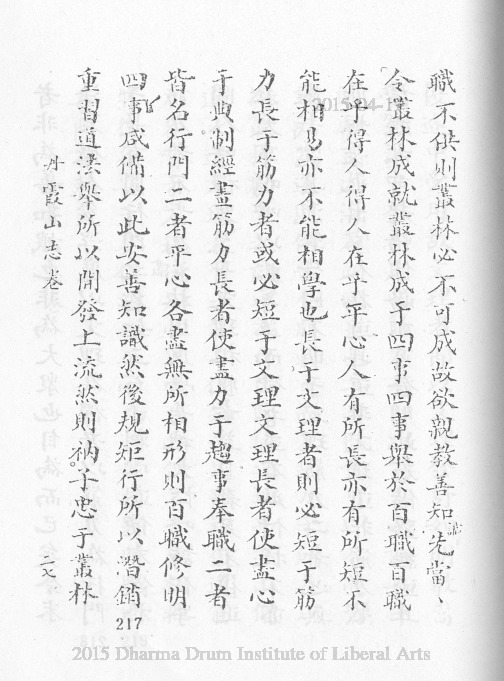 職不供則叢林必不可成故欲親教善知識先當、
令叢林成就叢林成于四事四事舉於百職百職
在乎得人得人在乎平心人有所長亦有所短不
能相易亦不能相學也長于文理者則必短于筋
力長于筋力者或必短于文理文理長者使盡心
于典制經畫筋力長者使盡力于趨事奉職二者
皆名行門二者平心各盡無所相形則百職修明
四事咸備以此安善知識然後規矩行所以潛銷
重習道法舉所以開發上流然則衲子忠于叢林
丹霞山志卷
二七
217
2015-04-1
2015 Dharma Drum Institute of Liberal Arts